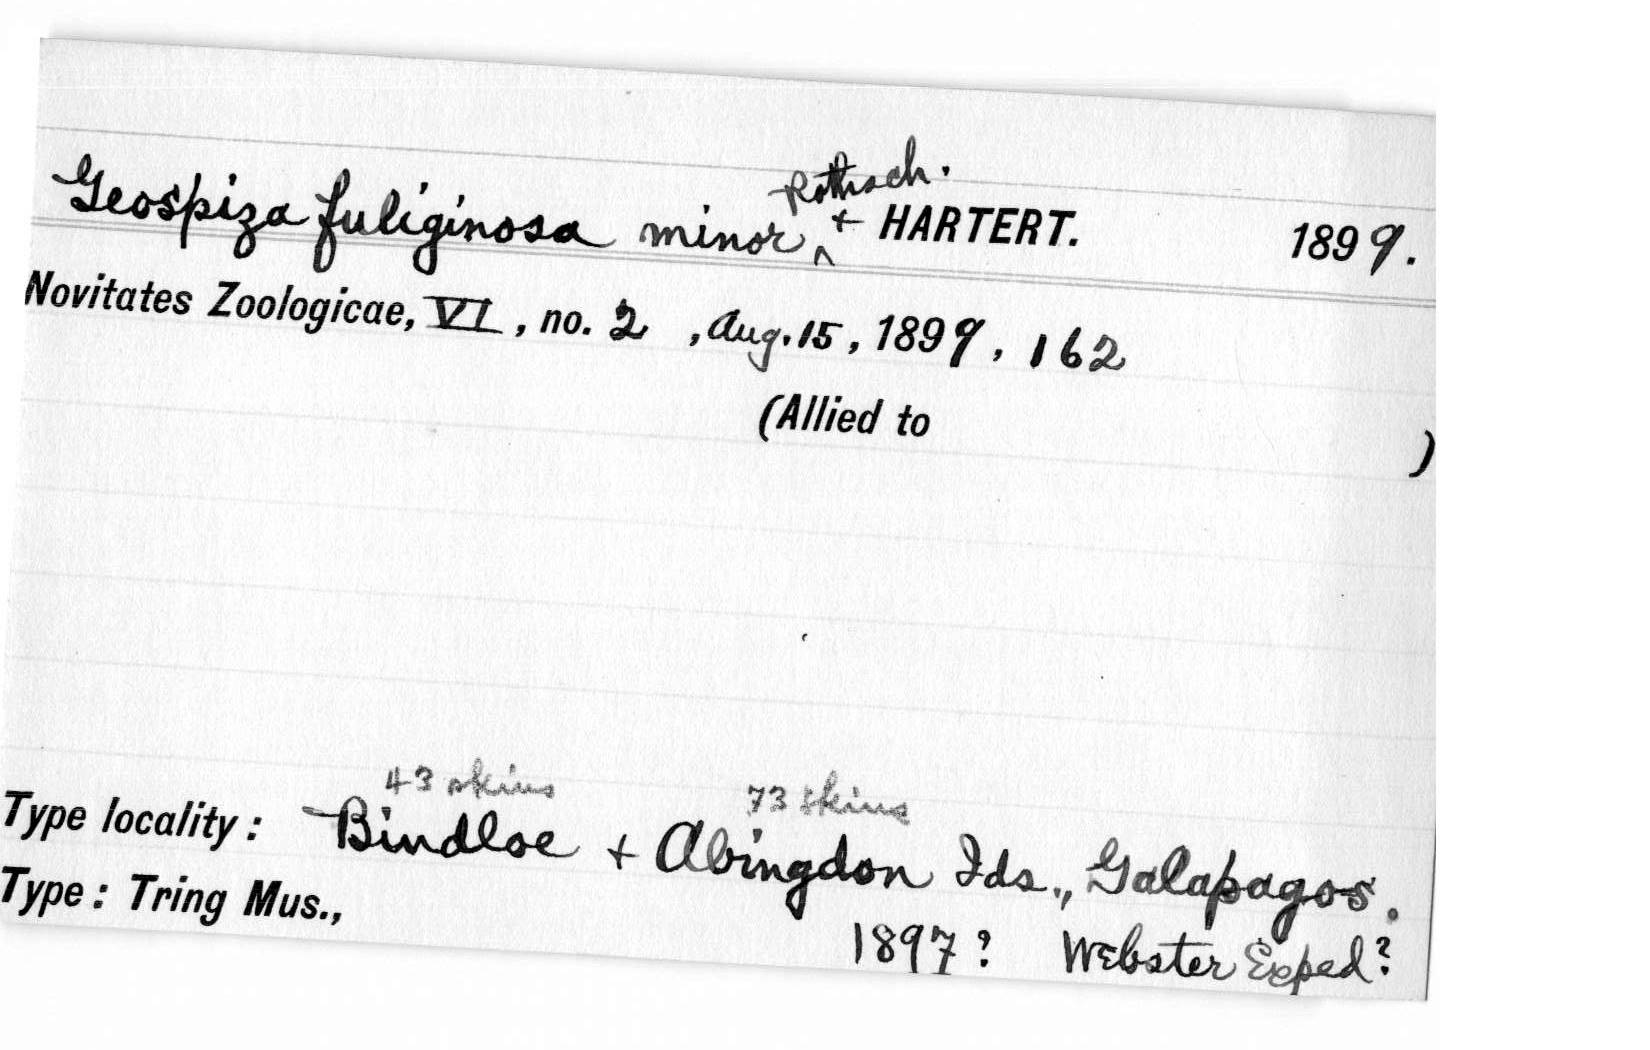 Rothsch.
Geospiza fuliginosa minor ^ + HARTERT. 1899.
Novitates Zoologicae, VI, no. 2, Aug. 15, 1899, 162
(Allied to )
43 skins 73 skins
Type locality: Bindloe + Abingdon Ids., Galapagos.
Type: Tring Mus.,
1897? Webster Exped?